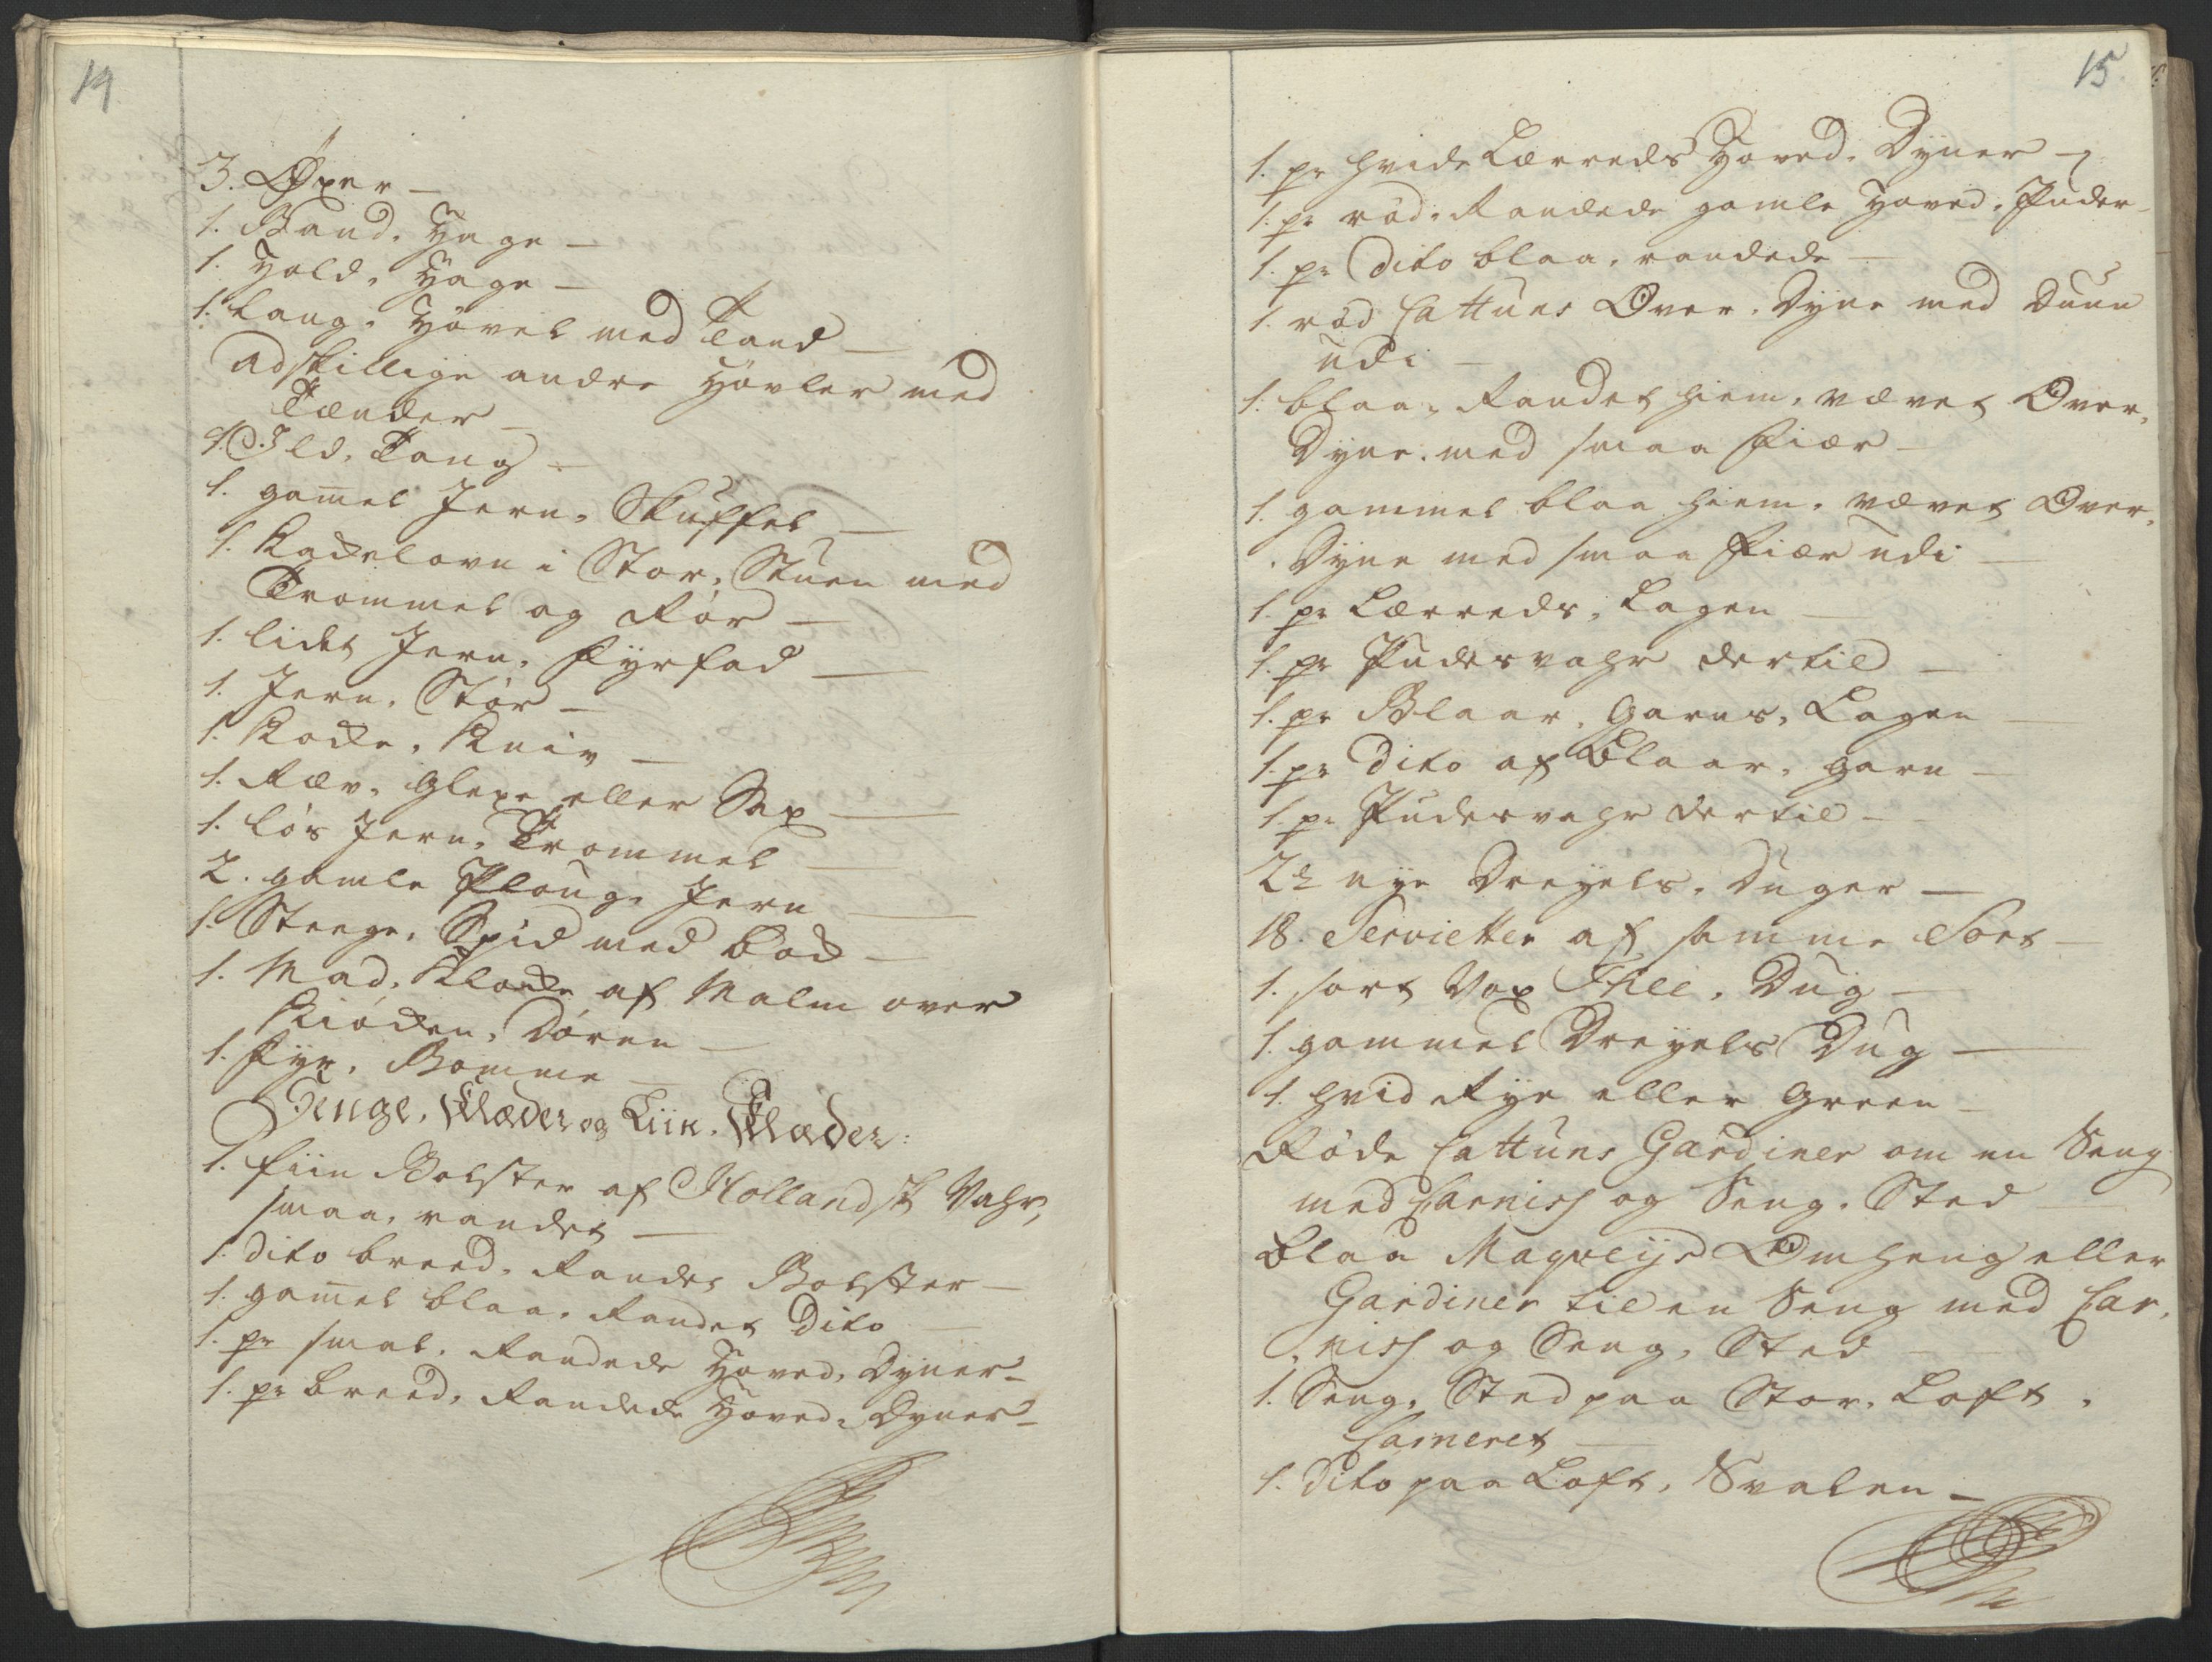 14
3. Øxer —
1. Baand, Hage —
1. Hold, Hage —
1. Lang, Høvel med Tand —
adskillige andre Høvler med
Tænder —
1. Ild, Tang —
1. gam̄el Jern, Skuffel —
1. Kackelovn i Stor, Stuen med
Trommel og Rør —
1. lidet Jern, Fyrfad —
1. Jern, Stør —
1. Kocke, Kniv —
1. Ræv, Glexe eller Sax —
1. løs Jern, Trommel —
2. gamle Ploug, Jern —
1. Steege, Spid med Lod —
1. Mad, Klocke af Malm over
Kiøcken, Døren —
1. Fyr, Bomme —
Senge, Klæder og Liin, Klæder:
1. fiin Bolster af Hollandsk Vahr,
smaa, randet —
1. dito breed, Randet Bolster —
1. gam̄el blaa, Randet Dito —
1. pr smal, Randede Hoved, Dyner —
1. pr breed, Randede Hoved, Dyner —
15
1. pr hvide Lærreds Hoved, Dyner —
1. pr rød, Randede gamle Hoved, Puder —
1. pr Dito blaa, randede —
1. rød Cattuns Over, Dyne med Duun
udi —
1. blaa, Randet hiem, vævet Over,
Dyne, med smaa Fiær —
1. gammel blaa hiem, vævet Over,
, Dyne med smaa Fiær udi —
1. pr Lærreds, Lagen —
1. pr Pudesvahr dertil —
1. pr Blaar, Garns, Lagen —
1. pr Dito af Blaar, garn —
1. pr Pudesvahr dertil —
2 nye Dreyels, Duger —
18. Servietter af samme Sort —
1. sort Vox Thee, Dug —
1. gammel Dreyels Dug —
1. hvid Rye eller Green —
Røde Cattuns Gardiner om en Seng
med Carnis og Seng, Sted —
blaa Omheng eller
Gardiner til en Seng med Car,
, nis og Seng, Sted —
1. Seng, Sted paa Stor, Loft ,
Cameret —
1. Dito paa Loft, Svalen —